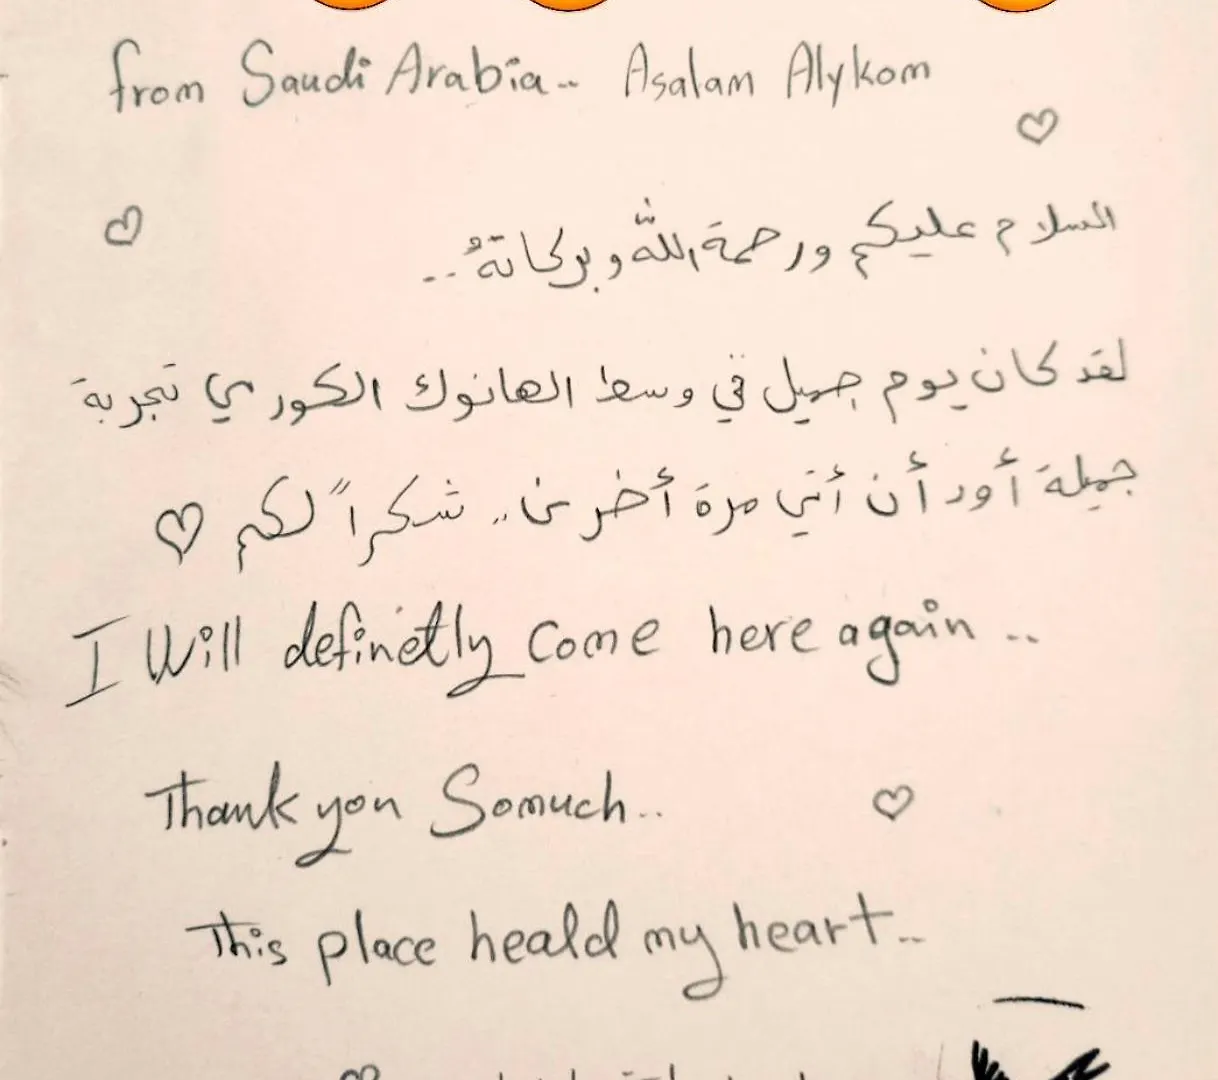 from Saudi Arabia.. Asalam Alykom
السلام عليكم ورحمة الله وبركاتة..
لقد كان يوم جميل في وسط الهانوك الكوري تجربة
جميلة أود أن أتي مرة أخرى.. شكراً لكم
I Will definetly come here again ..
Thank you Somuch..
This place heald my heart..